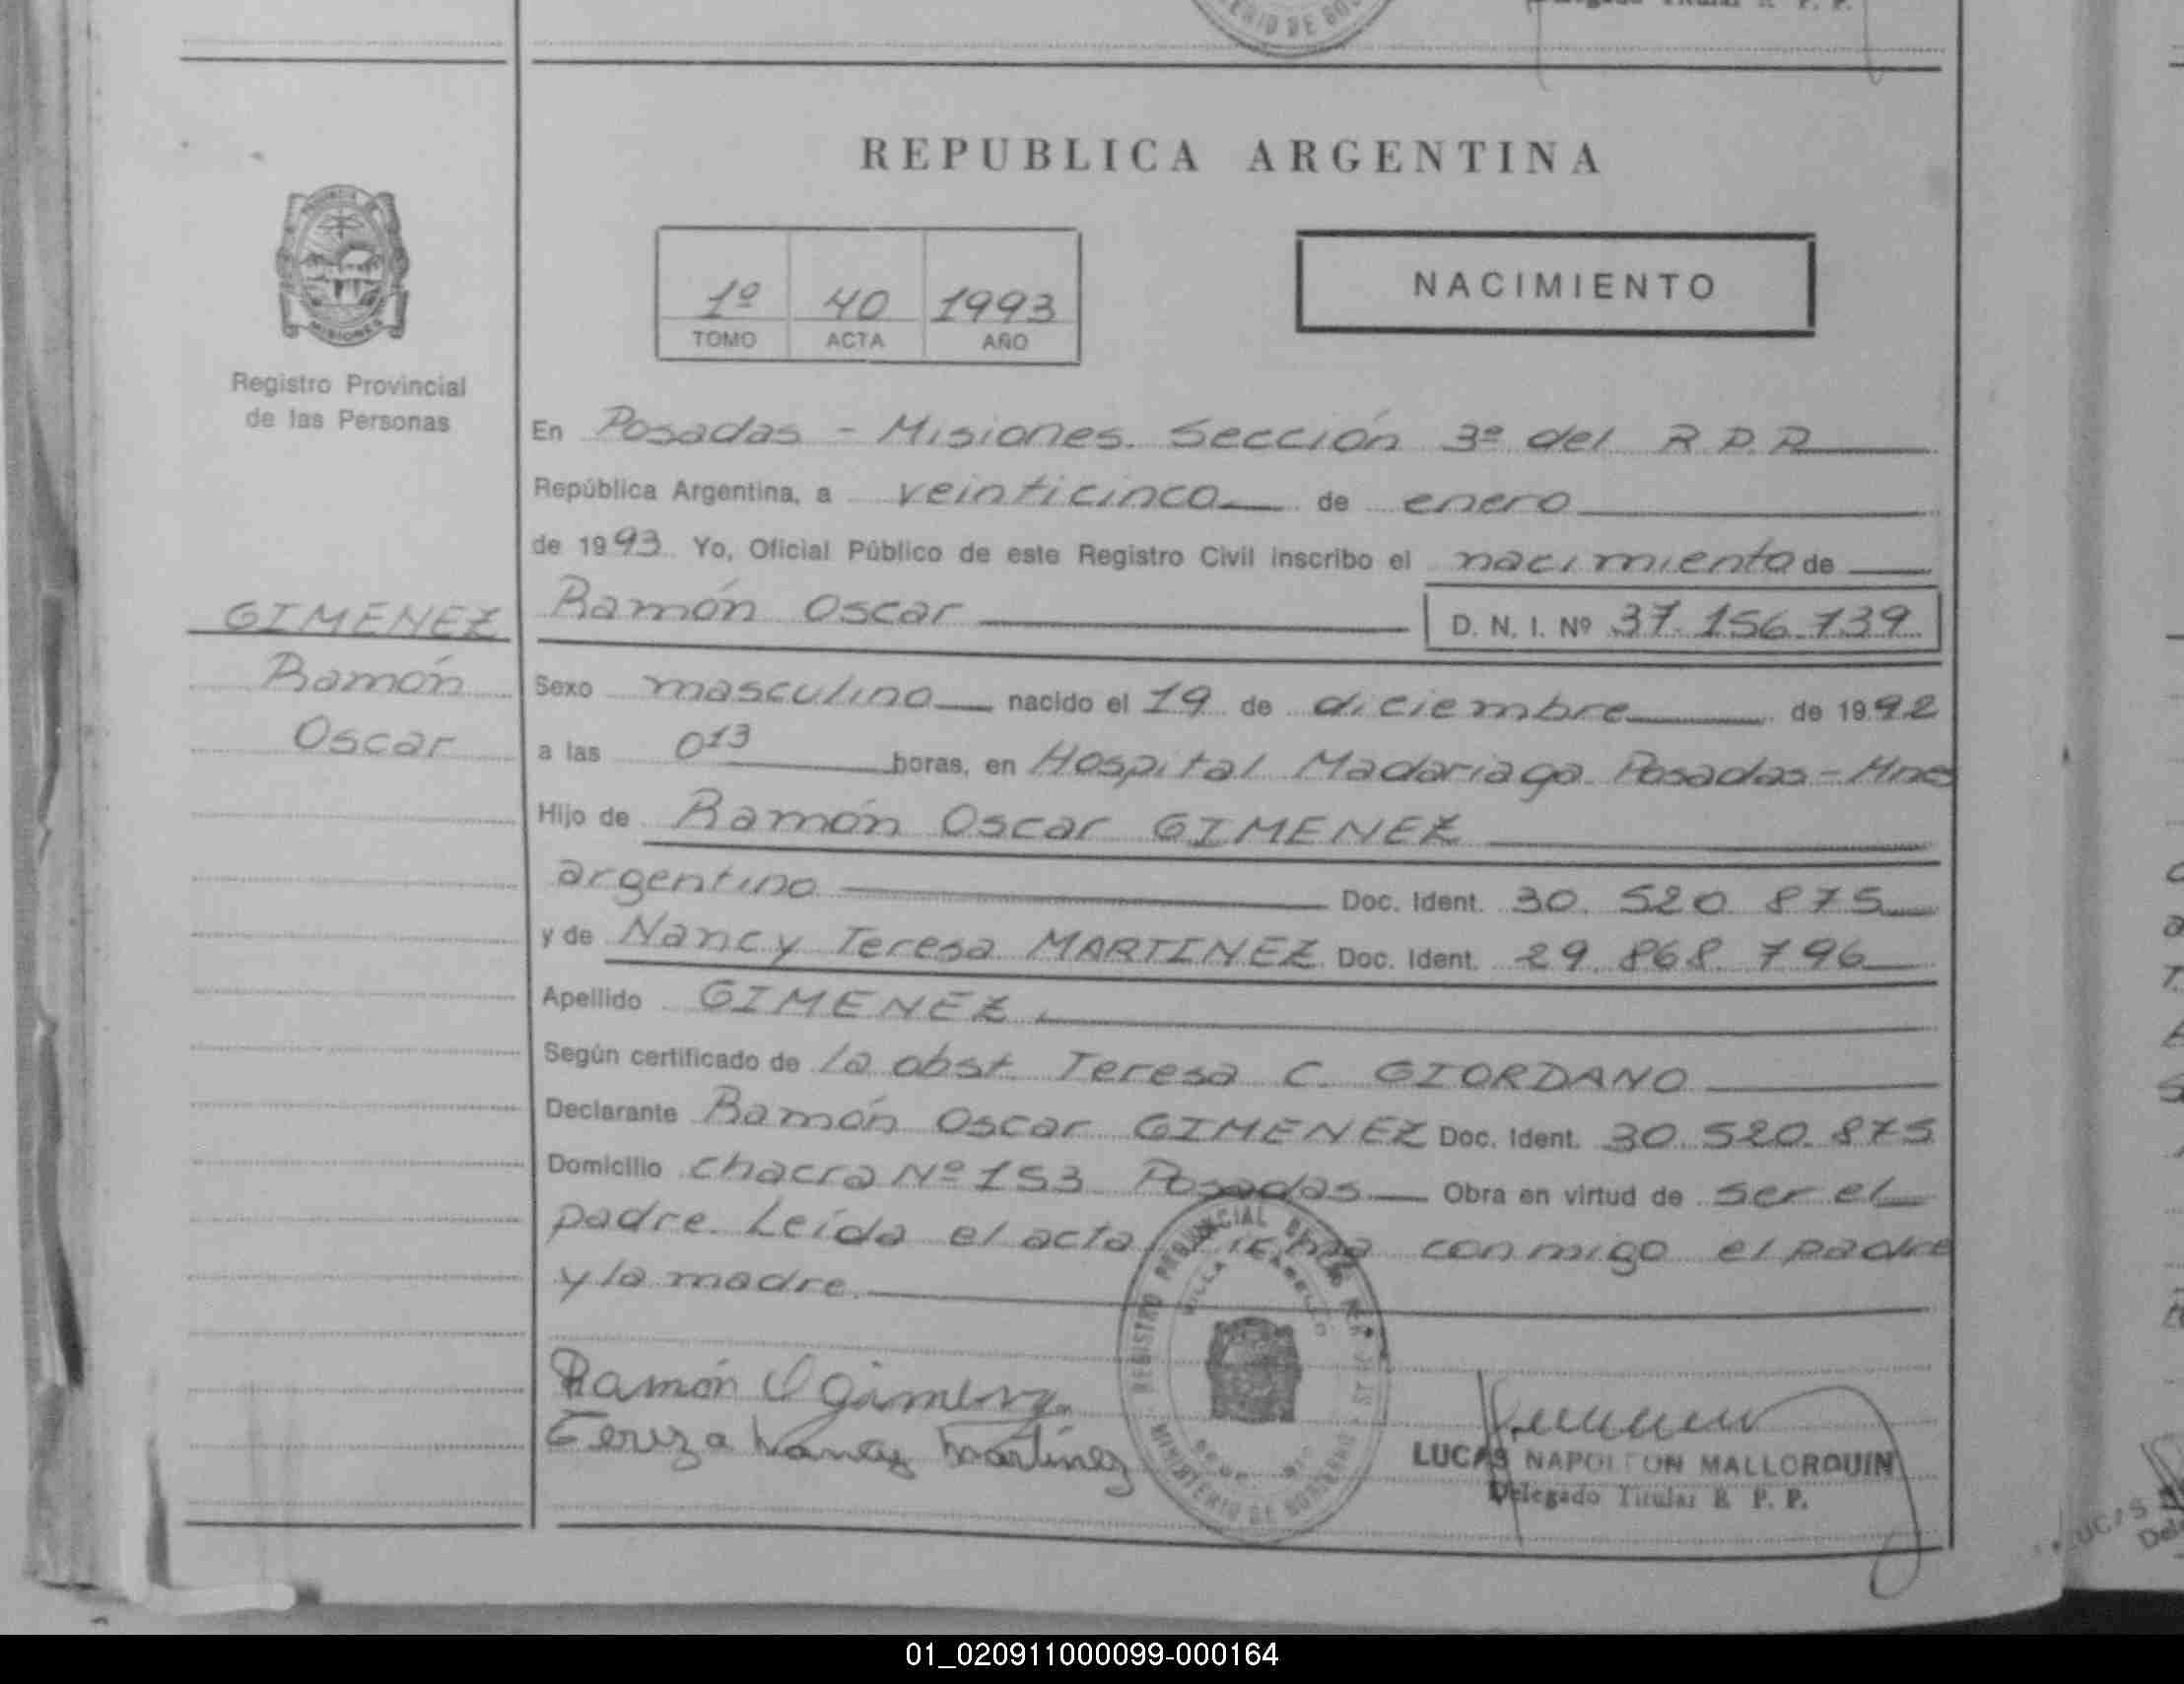 REPUBLICA ARGENTINA
1º 40 1993
TOMO ACTA AÑO
NACIMIENTO
MISIONES
Registro Provincial
de las Personas
GIMENEZ
Ramón
Oscar
En Posadas - Misiones. Sección 3ª del R.P.P.
República Argentina, a veinticinco de enero
de 1993. Yo, Oficial Público de este Registro Civil inscribo el nacimiento de
Ramón Oscar D. N. I. Nº 37.156.739
Sexo masculino nacido el 19 de diciembre de 1992
a las 0¹³ horas, en Hospital Madariaga Posadas - Mnes
Hijo de Ramón Oscar GIMENEZ
argentino Doc. Ident. 30.520.875
y de Nancy Teresa MARTINEZ Doc. Ident. 29.868.796
Apellido GIMENEZ.
Según certificado de la obst. Teresa C. GIORDANO
Declarante Ramón Oscar GIMENEZ Doc. Ident. 30.520.875
Domicilio Chacra Nº 153 Posadas Obra en virtud de ser el
padre. Leída el acta firma conmigo el padre
y la madre.
Ramón O Gimenez
Tereza Nancy Martinez
REGISTRO PROVINCIAL DE LAS PER
MINISTERIO DE GOBIERNO
LUCAS NAPOLEON MALLORQUIN
Delegado Titular R. P. P.
01_020911000099-000164